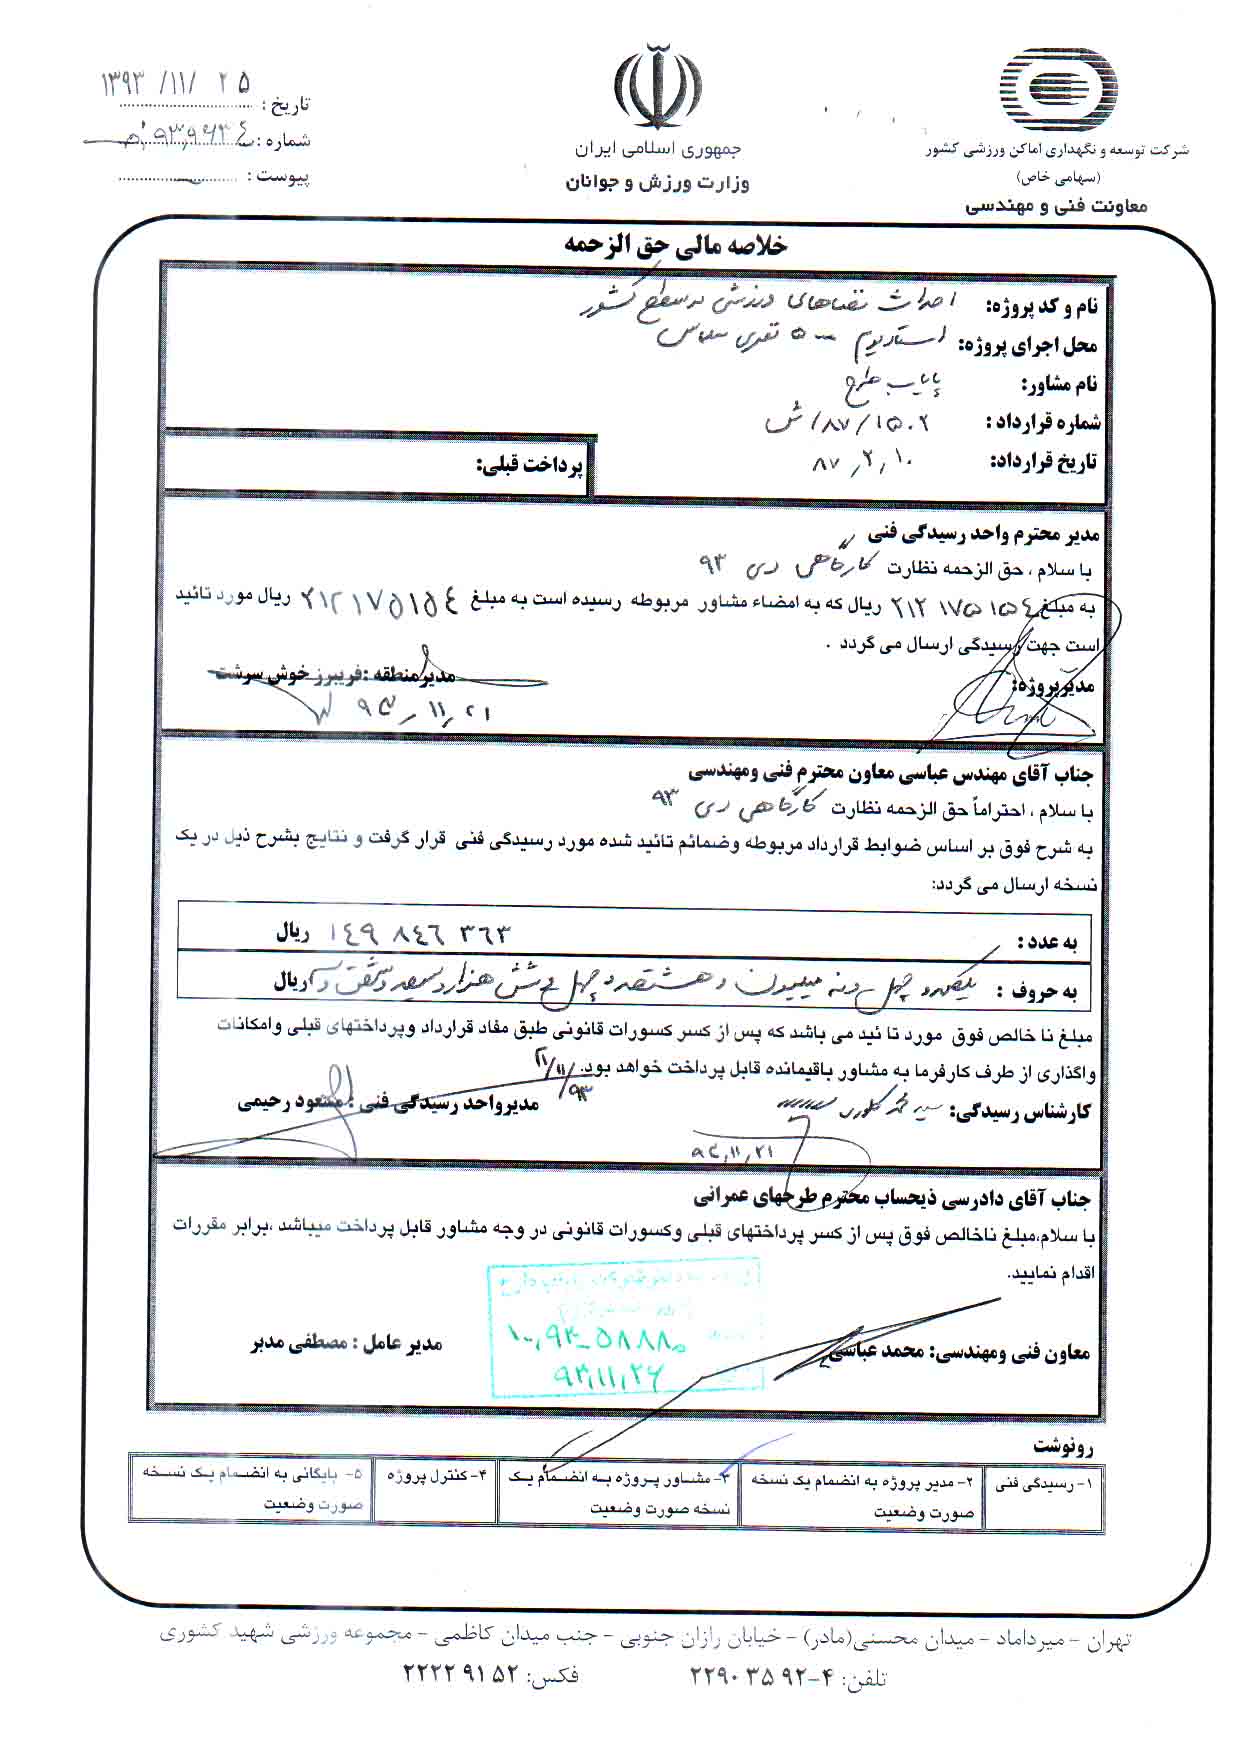 ۱۳۹۳/۱۱/۲۵
تاریخ :
شماره :
پیوست :
جمهوری اسلامی ایران
وزارت ورزش و جوانان
شرکت توسعه و نگهداری اماکن ورزشی کشور
(سهامی خاص)
معاونت فنی و مهندسی
خلاصه مالی حق الزحمه
نام و کد پروژه: احداث فضاهای ورزشی در سطح کشور
محل اجرای پروژه: استادیوم ۵۰۰۰ نفری سلماس
نام مشاور: پایاب طرح
شماره قرارداد : ۸۷/۱۵۰۲/ش
تاریخ قرارداد: ۸۷,۲,۱۰
پرداخت قبلی:
مدیر محترم واحد رسیدگی فنی
با سلام ، حق الزحمه نظارت کارگاهی دی ۹۳
به مبلغ ۲۱۲ ۱۷۵ ۱۵۴ ریال که به امضاء مشاور مربوطه رسیده است به مبلغ ۲۱۲ ۱۷۵ ۱۵۴ ریال مورد تائید
است جهت رسیدگی ارسال می گردد .
مدیرپروژه: مدیرمنطقه :فریبرز خوش سرشت
۹۳,۱۱,۲۱
جناب آقای مهندس عباسی معاون محترم فنی ومهندسی
با سلام ، احتراماً حق الزحمه نظارت کارگاهی دی ۹۳
به شرح فوق بر اساس ضوابط قرارداد مربوطه وضمائم تائید شده مورد رسیدگی فنی قرار گرفت و نتایج بشرح ذیل در یک
نسخه ارسال می گردد:
به عدد : ۱۴۹ ۸۴۶ ۳۶۳ ریال
به حروف : یکصد و چهل و نه میلیون و هشتصد و چهل و شش هزار و سیصد و شصت و سه ریال
مبلغ نا خالص فوق مورد تا ئید می باشد که پس از کسر کسورات قانونی طبق مفاد قرارداد وپرداختهای قبلی وامکانات
واگذاری از طرف کارفرما به مشاور باقیمانده قابل پرداخت خواهد بود.
۹۳/۱۱/۲۱
کارشناس رسیدگی: مدیرواحد رسیدگی فنی : مسعود رحیمی
۹۳,۱۱,۲۱
جناب آقای دادرسی ذیحساب محترم طرحهای عمرانی
با سلام،مبلغ ناخالص فوق پس از کسر پرداختهای قبلی وکسورات قانونی در وجه مشاور قابل پرداخت میباشد ،برابر مقررات
اقدام نمایید.
۹۳,۱۱,۲۶
معاون فنی ومهندسی: محمد عباسی مدیر عامل : مصطفی مدبر
رونوشت
۱- رسیدگی فنی
۲- مدیر پروژه به انضمام یک نسخه
صورت وضعیت
۳- مشاور پروژه به انضمام یک
نسخه صورت وضعیت
۴- کنترل پروژه
۵- بایگانی به انضمام یک نسخه
صورت وضعیت
تهران - میرداماد - میدان محسنی(مادر) - خیابان رازان جنوبی - جنب میدان کاظمی - مجموعه ورزشی شهید کشوری
تلفن: ۴-۹۲ ۳۵ ۲۲۹۰ فکس: ۵۲ ۹۱ ۲۲۲۲